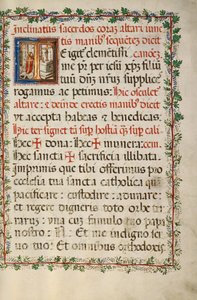 Inclinatus sacerdos coraz altari iunc
tis manibꝰ sequētez dicit
Te igit̃ clemētissi
me pr̄ per iesū xp̄m filiū
tuū dn̄m nr̄ꝫ supplices
rogamus ac petimus: Hic osculet̃
altare: et deinde erectis manibꝰ dicit
vt accepta habeas et benedicas.
Hic ter signet
Hec ✠ dona: Hec ✠ munera:
Hec sancta ✠ sacrificia illibata.
Imprimis que tibi offerimus pro
ecclesia tua sancta catholica quā
pacificare: custodire: adunare:
et regere digneris toto orbe ter
raruz: vna cuz famulo tuo papa
nostro: N: Et me indigno ser
uo tuo: Et omnibus orthodoxis